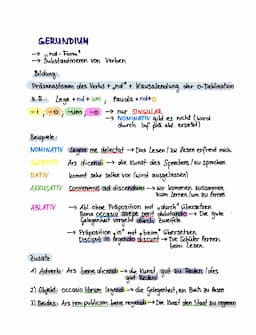 GERUNDIUM
→ "nd-Form"
→ Substantivieren von Verben
Bildung:
Präsensstamm des Verbs + "nd" + Kasusendung der o-Deklination
z.B. Lege + nd + um ; laudo + nd + o
-i, -o, -um, -o → nur SINGULAR
→ NOMINATIV gibt es nicht (wird
durch Inf. Präs. Akt. ersetzt)
Beispiele:
NOMINATIV legere me delectat → Das Lesen / zu lesen erfreut mich.
GENITIV Ars dicendi → die Kunst des Sprechens / zu sprechen
DATIV kommt sehr selten vor (wird ausgelassen)
AKKUSATIV Convenimus ad discendum → Wir kommen zusammen,
zum lernen / um zu lernen.
ABLATIV → Abl. ohne Präposition mit "durch" übersetzen
Bona occasio saepe perit dubitando → Die gute
Gelegenheit vergeht durch zweifeln.
→ Präposition "in" mit "beim" übersetzen
Discipuli in legendo discunt → Die Schüler lernen
beim Lesen.
Zusatz
1) Adverb: Ars bene dicendi → die Kunst, gut zu Reden / des
gut Redens
2) Objekt: occasio librum legendi → die Gelegenheit, ein Buch zu lesen
3) Beides: Ars rem publicam bene regendi → Die Kunst den Staat zu regieren